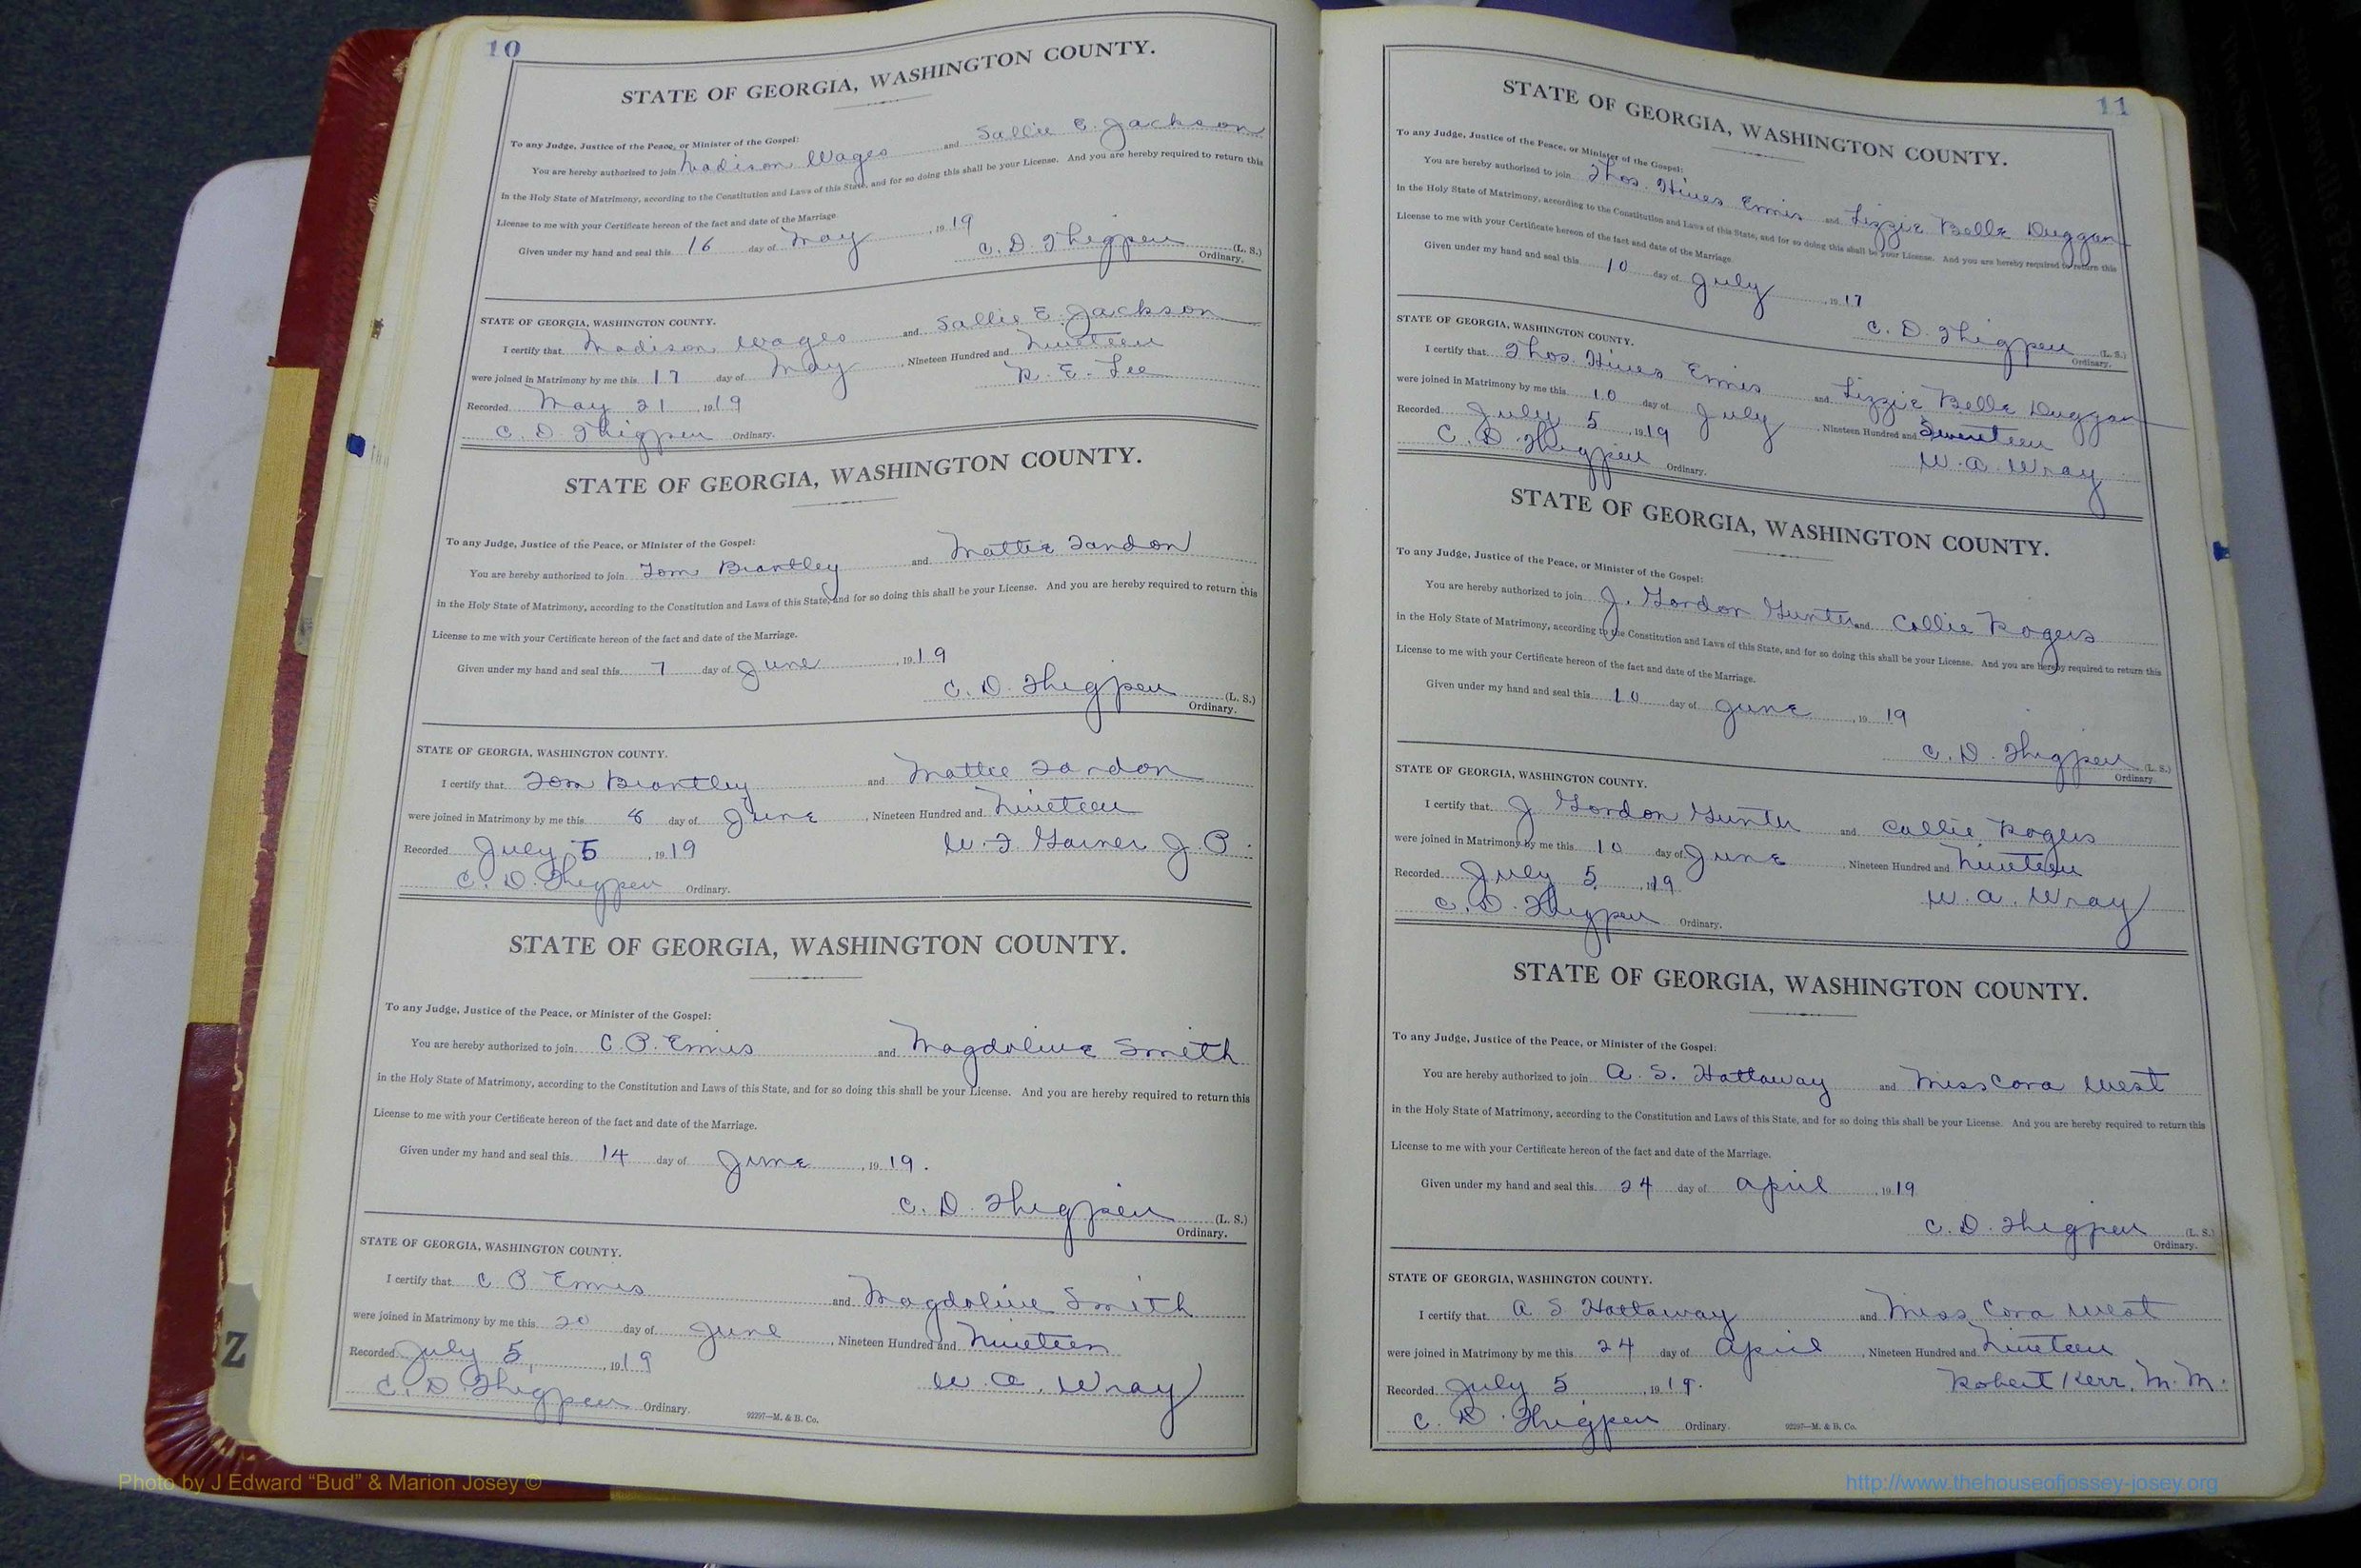 10
STATE OF GEORGIA, WASHINGTON COUNTY.
To any Judge, Justice of the Peace, or Minister of the Gospel:
You are hereby authorized to join Madison Wages and Sallie E. Jackson
in the Holy State of Matrimony, according to the Constitution and Laws of this State, and for so doing this shall be your License. And you are hereby required to return this
License to me with your Certificate hereon of the fact and date of the Marriage.
Given under my hand and seal this 16 day of May, 1919
C. D. Thigpen (L. S.)
Ordinary.
STATE OF GEORGIA, WASHINGTON COUNTY.
I certify that Madison Wages and Sallie E. Jackson
were joined in Matrimony by me this 17 day of May, Nineteen Hundred and Nineteen
Recorded May 21, 1919 R. E. Lee
C. D. Thigpen Ordinary.
STATE OF GEORGIA, WASHINGTON COUNTY.
To any Judge, Justice of the Peace, or Minister of the Gospel:
You are hereby authorized to join Tom Brantley and Mattie
in the Holy State of Matrimony, according to the Constitution and Laws of this State, and for so doing this shall be your License. And you are hereby required to return this
License to me with your Certificate hereon of the fact and date of the Marriage.
Given under my hand and seal this 7 day of June, 1919
C. D. Thigpen (L. S.)
Ordinary.
STATE OF GEORGIA, WASHINGTON COUNTY.
I certify that Tom Brantley and Mattie
were joined in Matrimony by me this 8 day of June, Nineteen Hundred and Nineteen
Recorded July 5, 1919 W. F. Garner J. P.
C. D. Thigpen Ordinary.
STATE OF GEORGIA, WASHINGTON COUNTY.
To any Judge, Justice of the Peace, or Minister of the Gospel:
You are hereby authorized to join C. P. Ennis and Magdoline Smith
in the Holy State of Matrimony, according to the Constitution and Laws of this State, and for so doing this shall be your License. And you are hereby required to return this
License to me with your Certificate hereon of the fact and date of the Marriage.
Given under my hand and seal this 14 day of June, 1919.
C. D. Thigpen (L. S.)
Ordinary.
STATE OF GEORGIA, WASHINGTON COUNTY.
I certify that C P Ennis and Magdoline Smith
were joined in Matrimony by me this 20 day of June, Nineteen Hundred and Nineteen
Recorded July 5, 1919 W. A. Wray
C. D. Thigpen Ordinary.
92297—M. & B. Co.
11
STATE OF GEORGIA, WASHINGTON COUNTY.
To any Judge, Justice of the Peace, or Minister of the Gospel:
You are hereby authorized to join Thos. Hines Ennis and Lizzie Belle Duggan
in the Holy State of Matrimony, according to the Constitution and Laws of this State, and for so doing this shall be your License. And you are hereby required to return this
License to me with your Certificate hereon of the fact and date of the Marriage.
Given under my hand and seal this 10 day of July, 1917
C. D. Thigpen (L. S.)
Ordinary.
STATE OF GEORGIA, WASHINGTON COUNTY.
I certify that Thos. Hines Ennis and Lizzie Belle Duggan
were joined in Matrimony by me this 10 day of July, Nineteen Hundred and Seventeen
Recorded July 5, 1919 W. A. Wray
C. D. Thigpen Ordinary.
STATE OF GEORGIA, WASHINGTON COUNTY.
To any Judge, Justice of the Peace, or Minister of the Gospel:
You are hereby authorized to join J. Gordon Gunter and Callie Rogers
in the Holy State of Matrimony, according to the Constitution and Laws of this State, and for so doing this shall be your License. And you are hereby required to return this
License to me with your Certificate hereon of the fact and date of the Marriage.
Given under my hand and seal this 10 day of June, 1919
C. D. Thigpen (L. S.)
Ordinary.
STATE OF GEORGIA, WASHINGTON COUNTY.
I certify that J Gordon Gunter and Callie Rogers
were joined in Matrimony by me this 10 day of June Nineteen Hundred and Nineteen
Recorded July 5, 1919 W. A. Wray
C. D. Thigpen Ordinary.
STATE OF GEORGIA, WASHINGTON COUNTY.
To any Judge, Justice of the Peace, or Minister of the Gospel:
You are hereby authorized to join A. S. Hattaway and Miss Cora West
in the Holy State of Matrimony, according to the Constitution and Laws of this State, and for so doing this shall be your License. And you are hereby required to return this
License to me with your Certificate hereon of the fact and date of the Marriage.
Given under my hand and seal this 24 day of April, 1919
C. D. Thigpen (L. S.)
Ordinary.
STATE OF GEORGIA, WASHINGTON COUNTY.
I certify that A S Hattaway and Miss Cora West
were joined in Matrimony by me this 24 day of April, Nineteen Hundred and Nineteen
Recorded July 5, 1919. Robert Kerr, M. M.
C. D. Thigpen Ordinary.
92297—M. & B. Co.
Z
Photo by J Edward “Bud” & Marion Josey ©
http://www.thehouseofjossey-josey.org